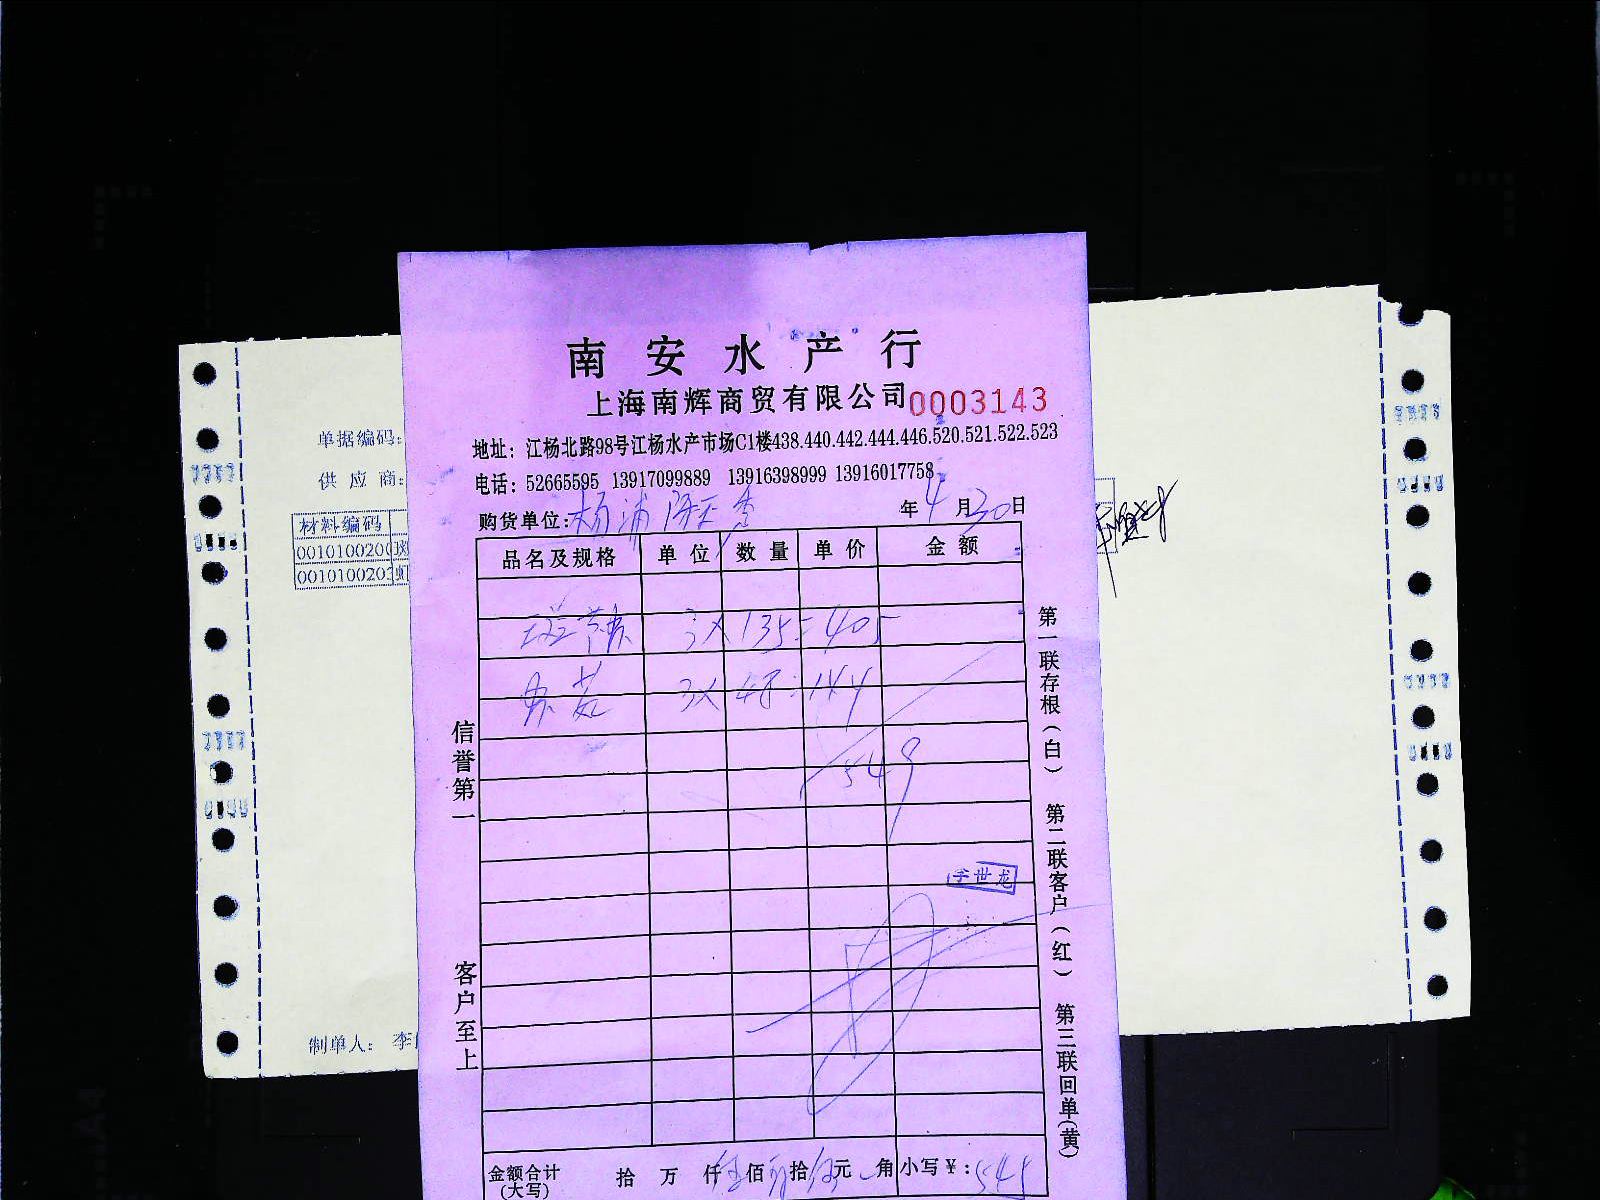 南安水产行
上海南辉商贸有限公司 0003143
地址：江杨北路98号江杨水产市场C1楼438.440.442.444.446.520.521.522.523
电话：52665595 13917099889 13916398999 13916017758
购货单位：杨浦 年4月30日
品名及规格 单位 数量 单价 金额
3×135=405
3×48=144
549
李世龙
金额合计（大写） 拾 万 仟 伍佰 拾 元 角 小写￥：545
信誉第一 客户至上
第一联存根（白） 第二联客户（红） 第三联回单（黄）
单据编码：
供应商：
材料编码
0010100200
001010020
制单人：李